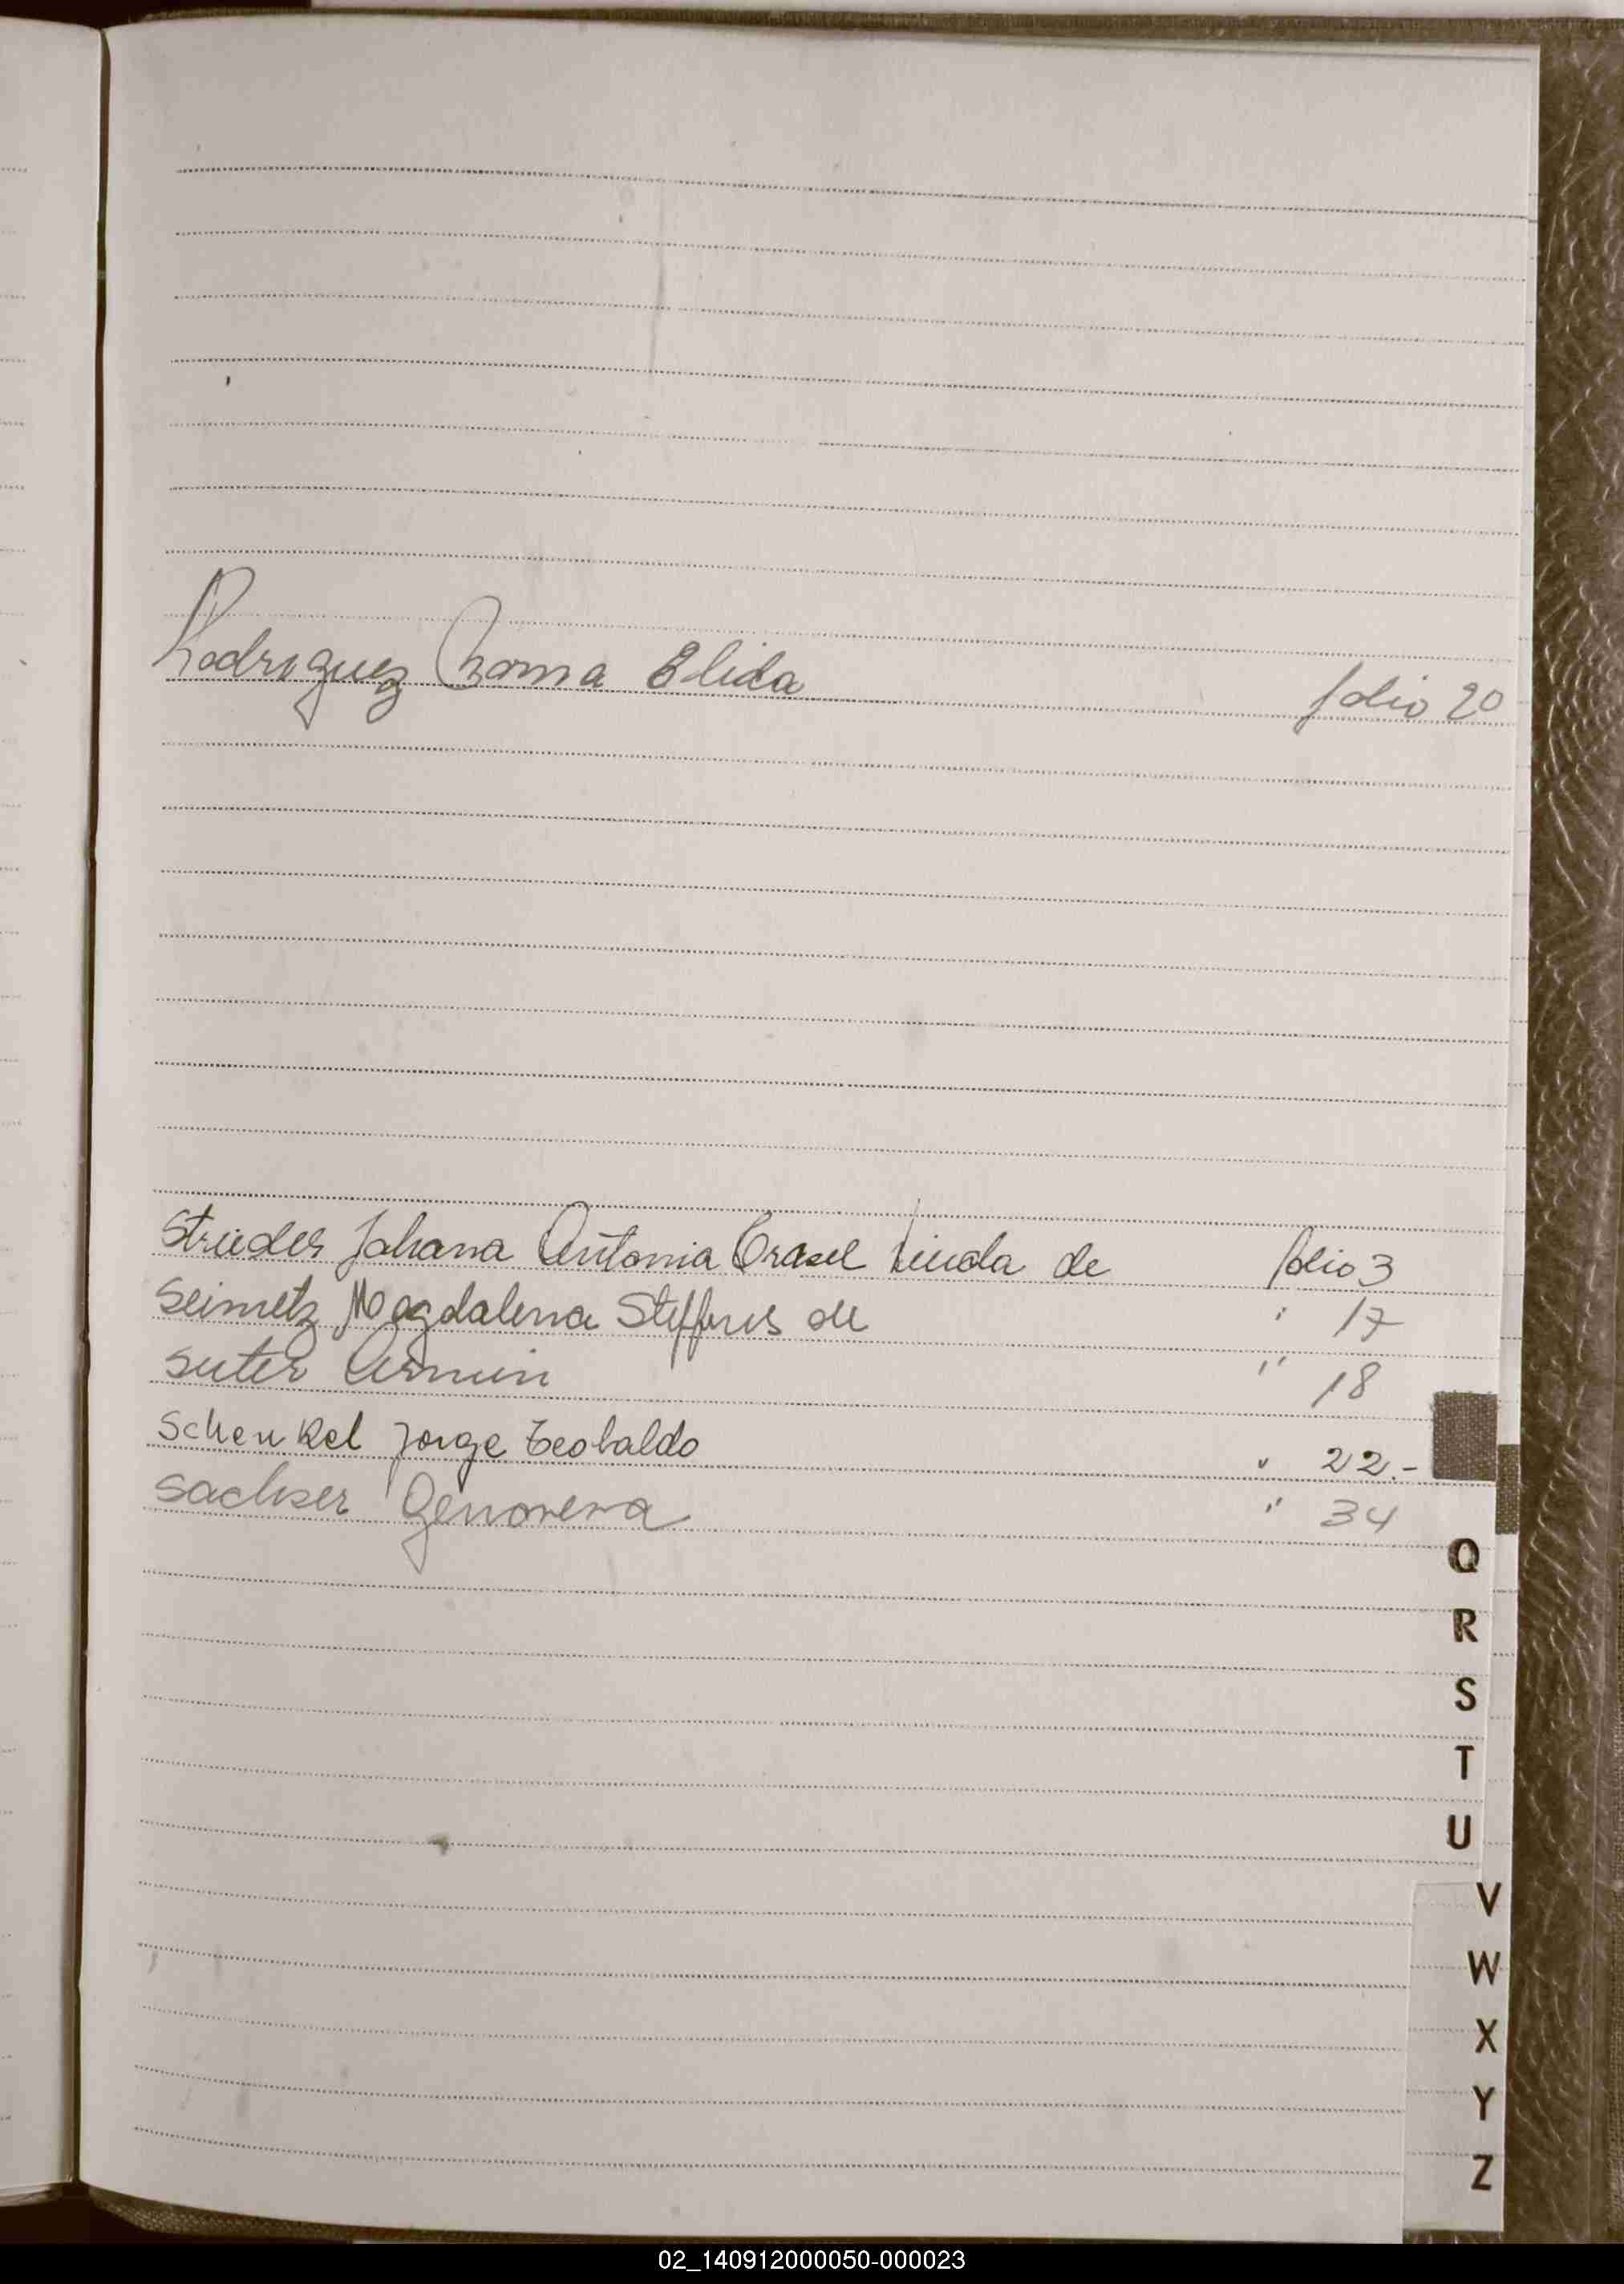 Rodriguez Roma Elida folio 20
Strieder Johana Antonia Crasel Viuda de folio 3
Seimetz Magdalena Stefferes de " 17
Suter Armin " 18
Schenkel Jorge Teobaldo " 22.-
Sachser Genoveva " 34
Q
R
S
T
U
V
W
X
Y
Z
02_140912000050-000023